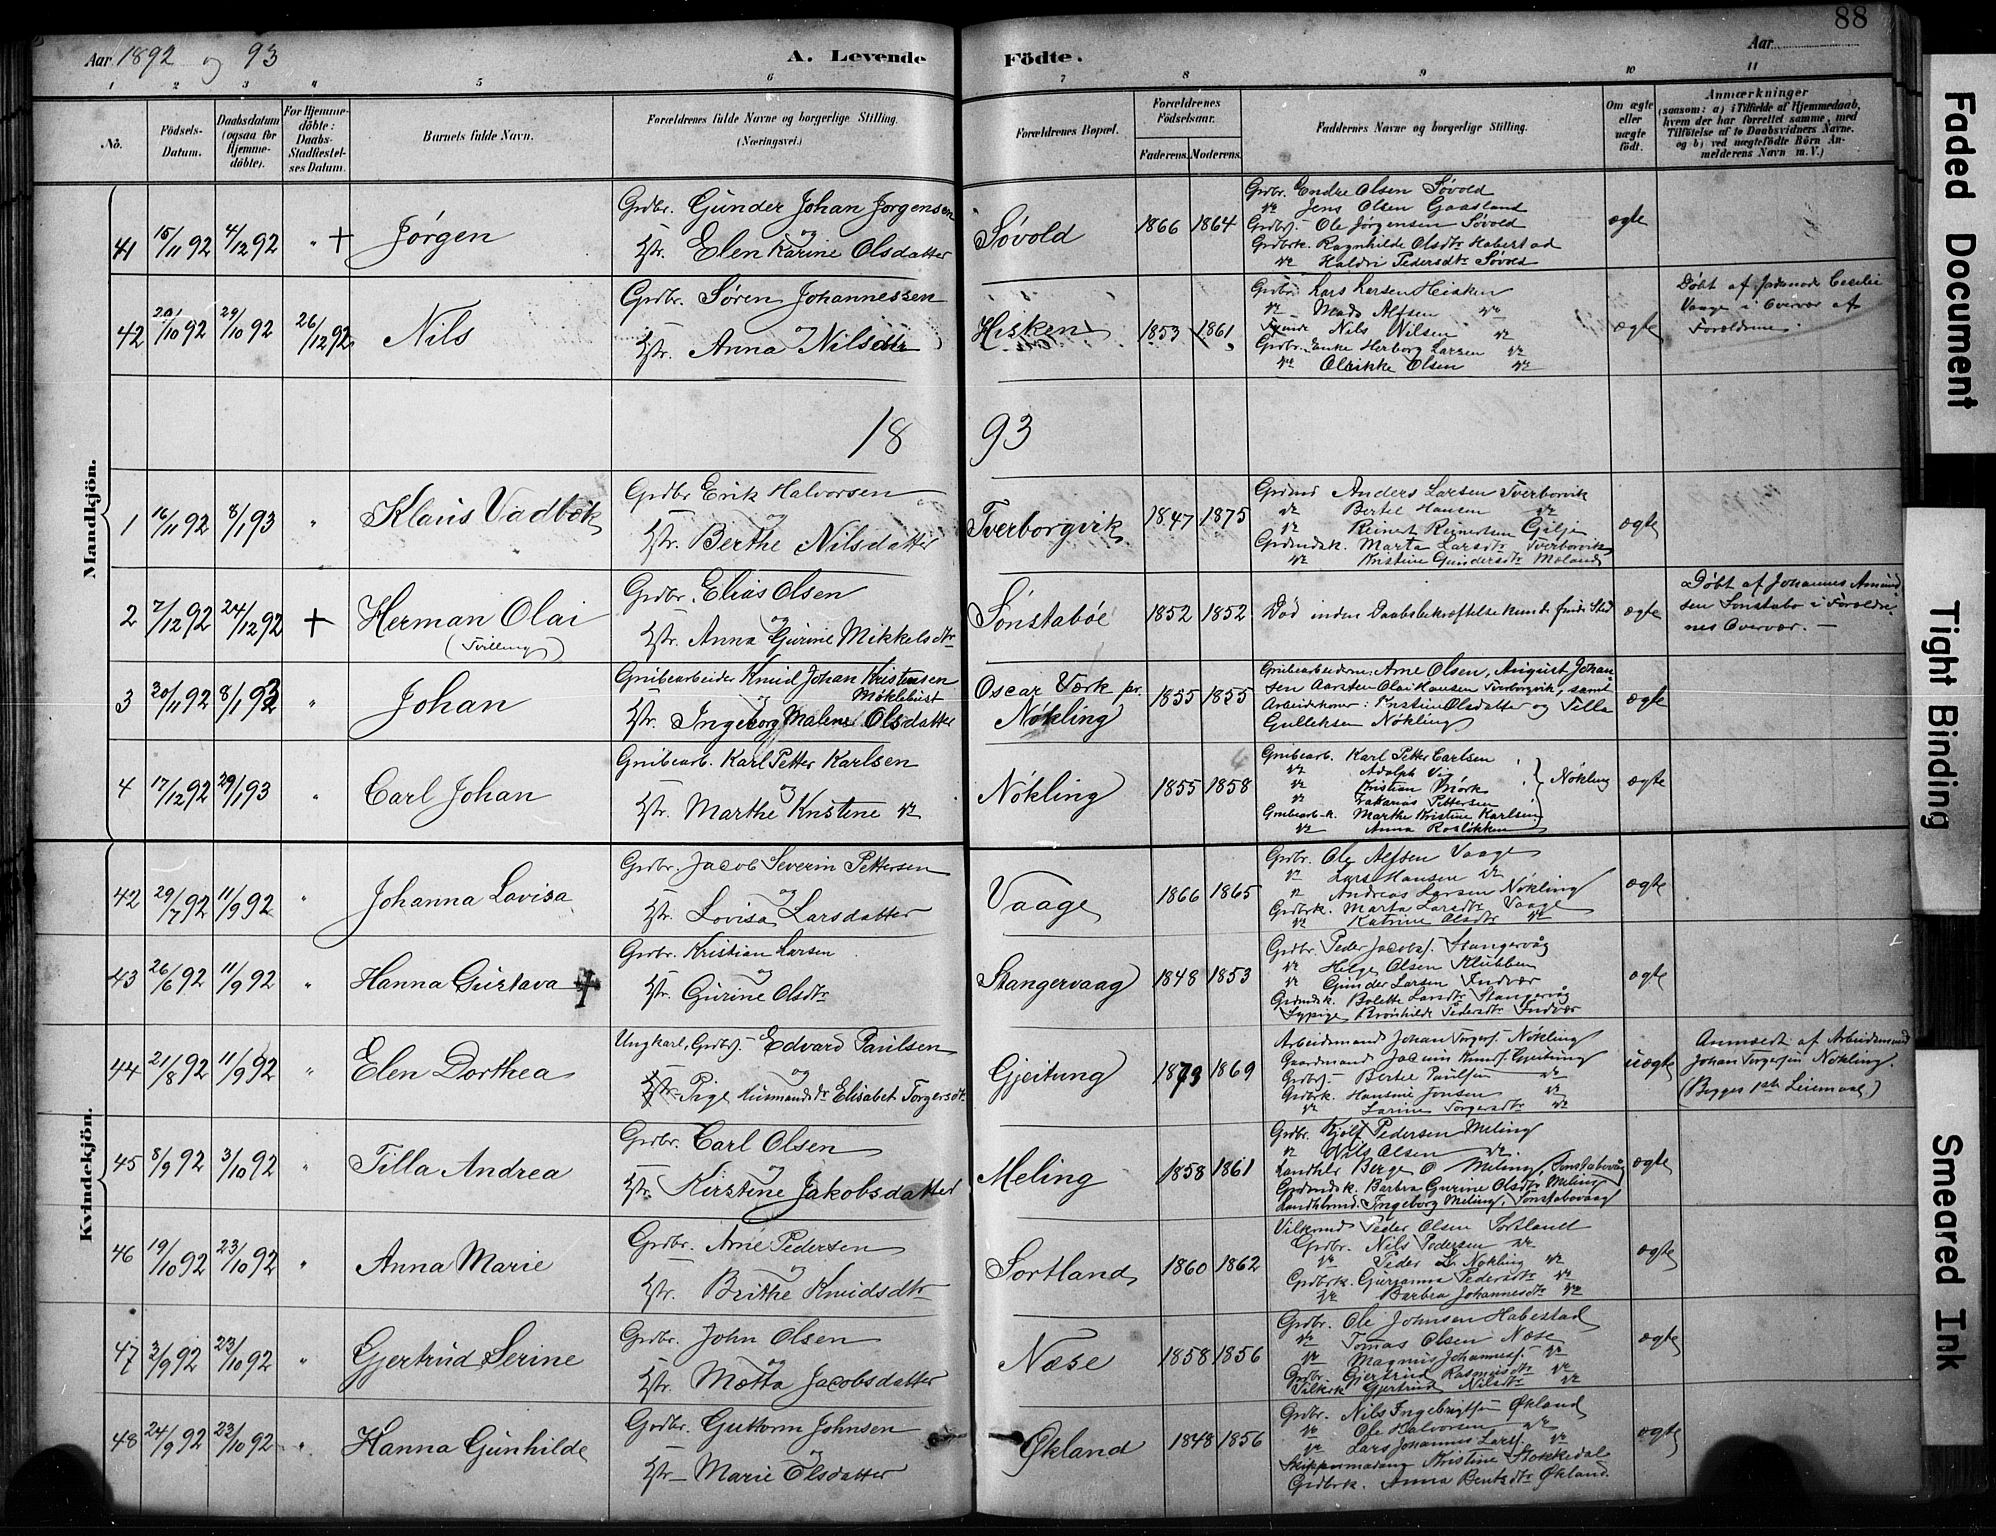 Aar 1892 og 93
A. Levende Födte.
Aar
88
1 2 3 4 5 6 7 8 9 10 11
No.
Födsels-Datum.
Daabsdatum (ogsaa for Hjemme-döbte).
For Hjemme-döbte: Daabs-Stadfæstel-ses Datum.
Barnets fulde Navn.
Forældrenes fulde Navne og borgerlige Stilling. (Næringsvei.)
Forældrenes Bopæl.
Forældrenes Födselsaar.
Faderens. Moderens.
Faddernes Navne og borgerlige Stilling.
Om ægte eller uægte födt.
Anmærkninger
(saasom: a) i Tilfælde af Hjemmedaab, hvem der har forrettet samme, med Tilföielse af to Daabsvidners Navne. og b) ved uægtefödte Börn An-melderens Navn m. V.)
Mandkjön.
41 15/11 92 4/12 92 " + Jørgen
Grdbr. Gunder Johan Jørgensen
og
Hstr. Elen Karine Olsdatter
Søvold 1866 1864
Grdbr. Endre Olsen Søvold
Jens Olsen Gaasland
Ole Jørgensen Søvold
Grdbrk. Ragnhilde Olsdtr Habestad
Haldri Pedersdtr Søvold
ægte
42 20/10 92 29/10 92 26/12 92 Nils
Grdbr. Søren Johannessen
og
Hstr. Anna Nilsdtr
Hisken 1853 1861
Grdbr. Lars Larsen Hisken
Mads Alfsen
Nils Nilsen
Enke Herborg Larsen
Olrikke Olsen
ægte
Døbt af Jordmod. Cecilie
Vaage i Overvær af
Forældrene.
18 93
1 16/11 92 8/1 93 " Klaus Vadbæk
Grdbr Erik Halvorsen
og
Hstr. Berthe Nilsdatter
Tverborgvik 1847 1875
Grdmd Anders Larsen Tverborvik
Bertel Hansen
Reinert Reinertsen Gilje
Grdmdsk. Marta Larsdtr Tverborvik
Kristine Gundersdtr Mæland
ægte
2 7/12 92 24/12 92 + Herman Olai
(Tvilling)
Grdbr. Elias Olsen
og
Hstr. Anna Gurine Mikkelsdtr
Sønstabøe 1852 1852
Død inden Daabsbekræftelse kunde finde Sted
ægte
Døbt af Johannes Amund-
sen Sønstabø i Forældre-
nes Overvær. —
3 20/11 92 8/1 93 " Johan
Grubearbeider Knud Johan Kristensen
Møklebust
og
Hstr. Ingeborg Malene Olsdatter
Oscar Værk pr.
Nøkling
1855 1855
Grubearbeiderne: Arne Olsen, August Johan-
sen Aarsten Olai Hansen Tverborgvik, samt
Arbeidskoner: Kristine Olsdatter og Tilla
Gulleksen Nøkling
ægte
4 17/12 92 29/1 93 " Carl Johan
Grubearb. Karl Petter Karlsen
og
Hstr. Marthe Kristine
Nøkling 1855 1858
Grubearb. Karl Petter Carlsen
Adolph Vig
Kristian Mørk
Zakarias Pettersen
Grubearb.k. Marthe Kristine Karlsen
Anna Rosløkken
Nøkling
ægte
Kvindekjön.
42 29/7 92 11/9 92 " Johanna Lovisa
Grdbr. Jacob Severin Pettersen
og
Hstr. Lovisa Larsdatter
Vaage 1866 1865
Grdbr. Ole Alfsen Vaage
Lars Hansen
Andreas Larsen Nøkling
Grdbrk. Marta Larsdtr Vaage
Katrine Olsdtr
ægte
43 26/6 92 11/9 92 " Hanna Gustava +
Grdbr. Kristian Larsen
og
Hstr. Gurine Olsdtr
Stangervaag 1848 1853
Grdbr Peder Jacobs. Stangervåg
Helge Olsen Klubben
Gunder Larsen Indvær
Grdmdsk. Bolette Larsdtr Stangervåg
Sypige Brønhilde Pedersdtr Indvær
ægte
44 21/8 92 11/9 92 " Elen Dorthea
Ungkarl, Grdbrs. Edvard Paulsen
og
Pige Husmandsdtr Elisabet Torgersdtr
Gjeitung 1873 1869
Arbeidsmand Johan Torgers. Nøkling
Gaardmand Jacim Knuds. Gjeitung
Bertel Paulsen
Grdbrk. Hansine Jonsen
Larine Torgersdtr
uægte
Anmeldt af Arbeidsmand
Johan Torgersen Nøkling.
(Begges 1ste Leiermaal)
45 8/9 92 3/10 92 " Tilla Andrea
Grdbr. Carl Olsen
og
Hstr. Kirstine Jakobsdatter
Meling 1858 1861
Grdbr. Kjølf Pedersen Meling
Nils Olsen
Landhdl. Berge O Meling, Sønstabøvåg
Grdmdsk. Barbra Gurine Olsdtr Meling
Ingeborg Meling, Sønstabøvaag
ægte
46 19/10 92 23/10 92 " Anna Marie
Grdbr. Arne Pedersen
og
Hstr. Brithe Knudsdtr
Sortland 1860 1862
Peder Olsen Sortland
Grdbr. Nils Pedersen
Peder L. Nøkling
Grdbrk. Gurianna Pedersdtr
Barbra Johannesdtr
ægte
47 3/9 92 23/10 92 " Gjertrud Serine
Grdbr. John Olsen
og
Hstr. Mætta Jacobsdatter
Næse 1858 1856
Grdbr. Ole Johnsen Habestad
Tomas Olsen Næse
Magnus Johanness.
Grdbr. Gjertrud Rasmusdtr
Gjertrud Nilsdtr
ægte
48 24/9 92 23/10 92 " Hanna Gunhilde
Grdbr. Guttorm Johnsen
og
Hstr. Marie Olsdatter
Økland 1848 1856
Grdbr. Nils Ingebrigtsen Økland
Ole Halvorsen
Lars Johannes Lars.
Skippermadam Kristine Stokkedal
Grdbrk. Anna Bentsdtr Økland
ægte
Faded Document
Tight Binding
Smeared Ink